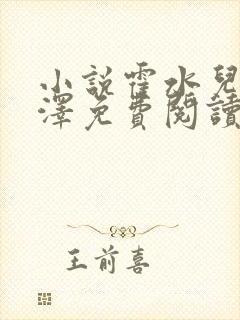 小說霍水兒
澤免費閱讀
王前喜